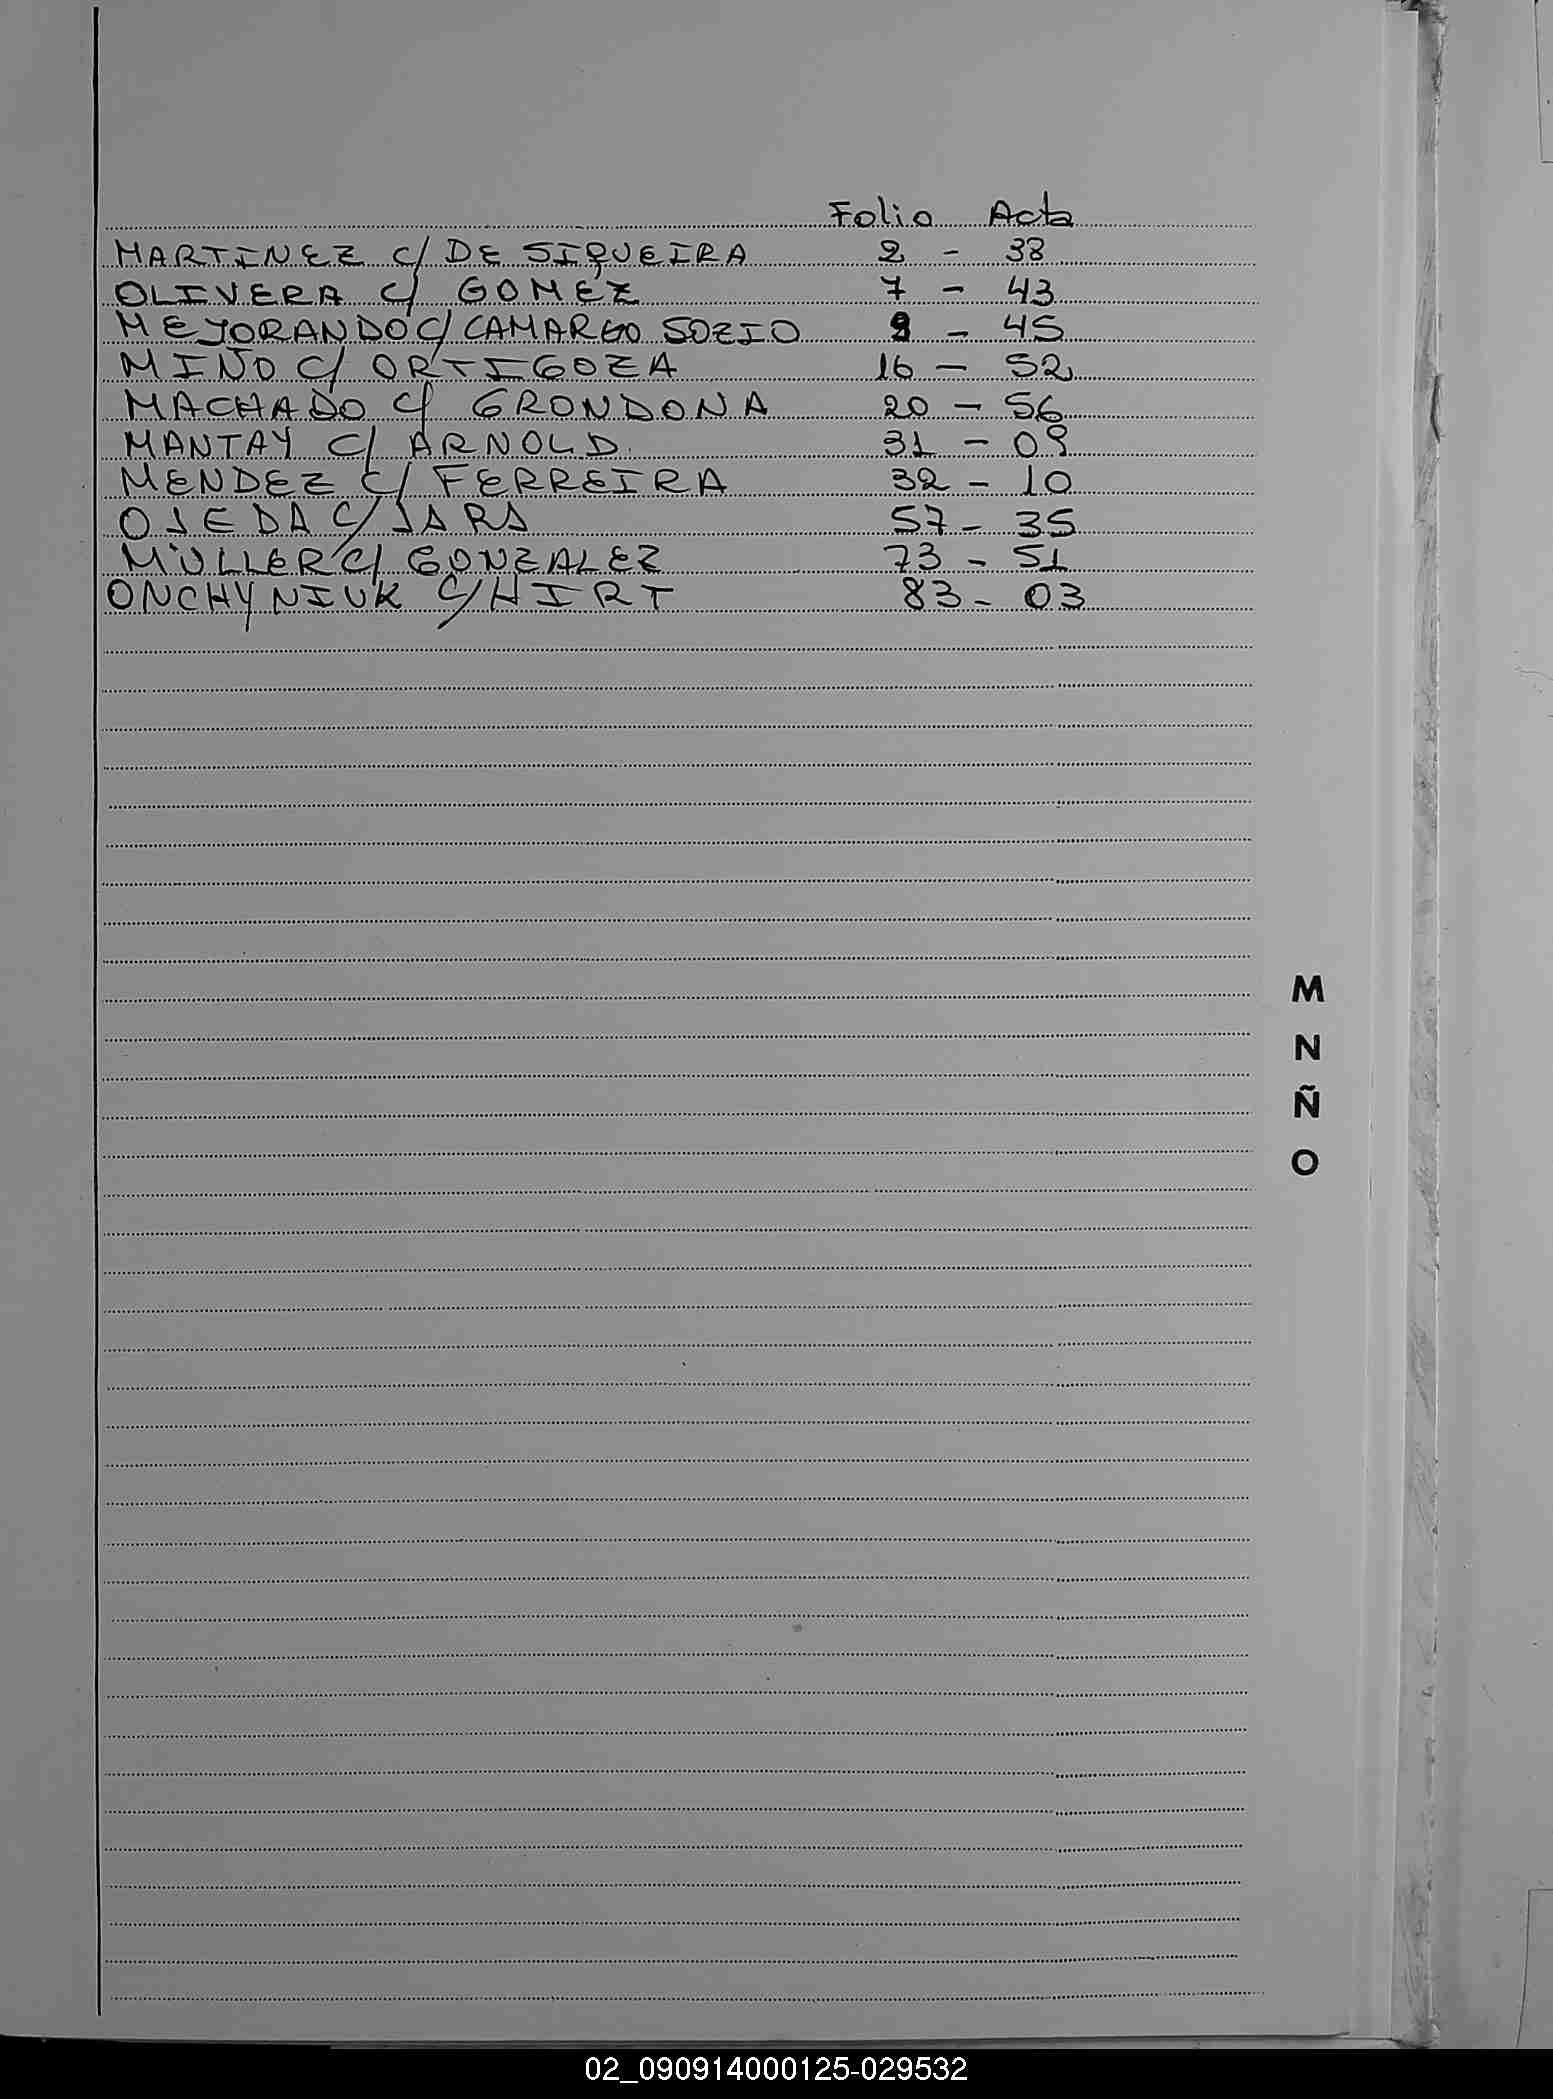 Folio Acta
MARTINEZ C/ DE SIQUEIRA 2 - 38
OLIVERA C/ GOMEZ 7 - 43
MEJORANDO C/ CAMARGO SOZIO 9 - 45
MIÑO C/ ORTIGOZA 16 - 52
MACHADO C/ GRONDONA 20 - 56
MANTAY C/ ARNOLD. 31 - 09
MENDEZ C/ FERREIRA 32 - 10
OJEDA C/ JARA 57 - 35
MÜLLER C/ GONZALEZ 73 - 51
ONCHYNIUK C/ HIRT 83 - 03
M
N
Ñ
O
02_090914000125-029532